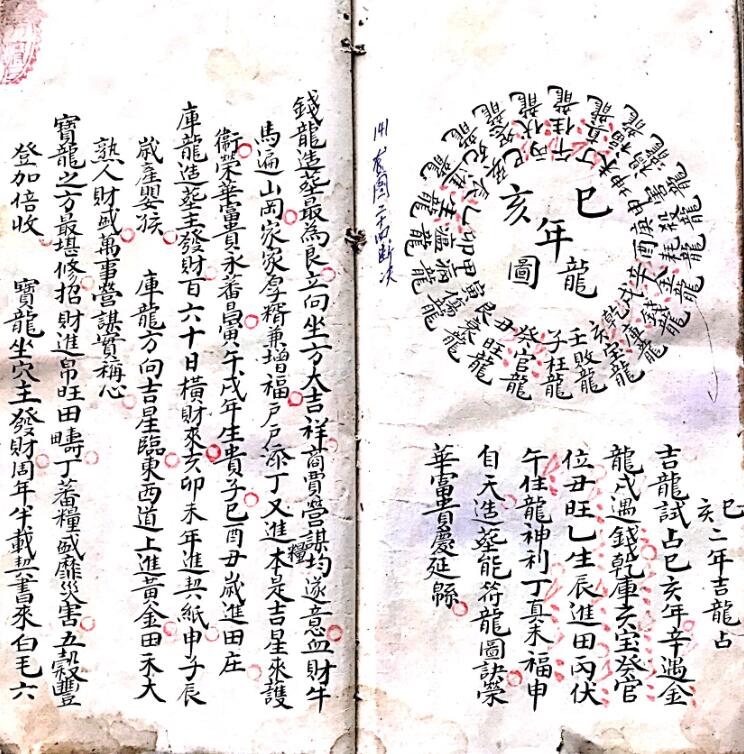 巳亥年龍圖
壬敗龍
子枉龍
癸官龍
丑旺龍
艮喪龍
寅傷龍
甲病龍
卯瘟龍
乙生龍
辰進龍
巽死龍
丙伏龍
午住龍
丁真龍
未福龍
坤禍龍
申害龍
庚殺龍
酉耗龍
辛金龍
戌錢龍
乾庫龍
亥宝龍
巳亥二年吉龍占
吉龍試占巳亥年辛遇金
龍戌遇錢乾庫亥宝癸官
位丑旺乙生辰進田丙伏
午住龍神利丁真未福申
自天造塟能符龍圖訣榮
華富貴慶延緜
141
錢龍造塟最為良立向坐方大吉祥商賈營謀均遂意血財牛
馬遍山岡家家厚糈兼增福戶戶添丁又進糧本是吉星來護
衞榮華富貴永番昌寅午戌年生貴子巳酉丑歲進田庄
庫龍造塟主發財百六十日橫財來亥卯未年進契紙申子辰
歲產嬰孩 庫龍方向吉星臨東西道上進黃金田禾大
熟人財盛萬事營謀實稱心
寶龍之方最堪修招財進帛旺田疇丁蕃糧盛靡災害五穀豐
登加倍收 寶龍坐穴主發財周年半載契書來白毛六